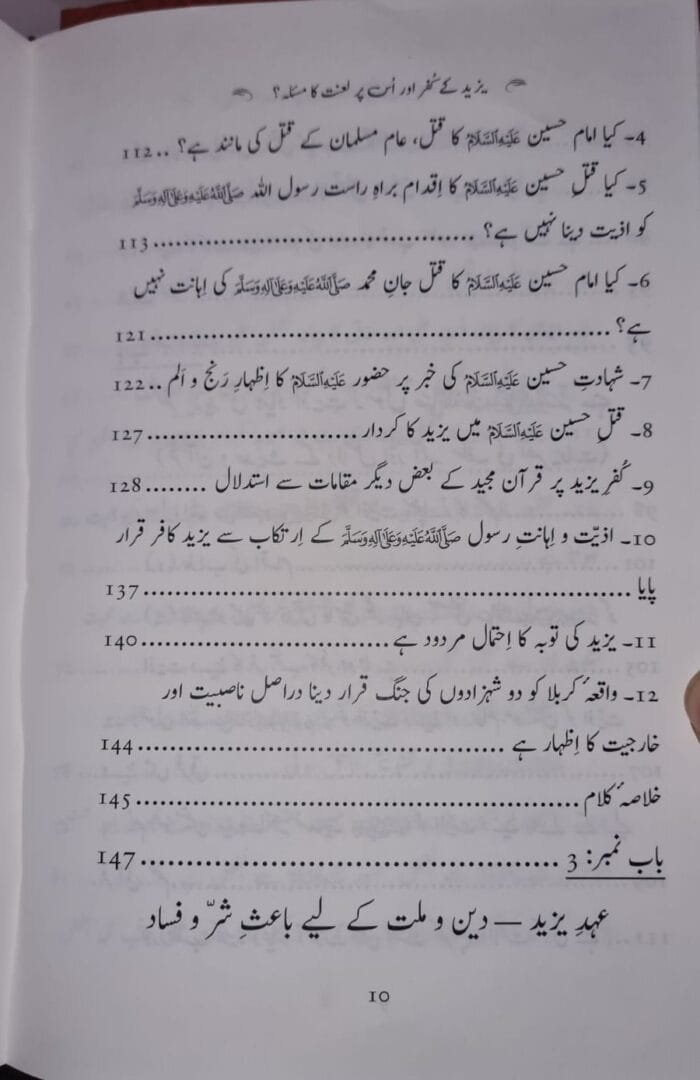 یزید کے کُفر اور اُس پر لعنت کا مسئلہ؟
4۔ کیا امام حسین عَلَيْهِ السَّلَامُ کا قتل، عام مسلمان کے قتل کی مانند ہے؟ .. 112
5۔ کیا قتلِ حسین عَلَيْهِ السَّلَامُ کا اِقدام براہِ راست رسول اللہ صَلَّى اللهُ عَلَيْهِ وَعَلَى آلِهِ وَسَلَّمَ
کو اذیت دینا نہیں ہے؟ ........................................ 113
6۔ کیا امام حسین عَلَيْهِ السَّلَامُ کا قتل جانِ محمد صَلَّى اللهُ عَلَيْهِ وَعَلَى آلِهِ وَسَلَّمَ کی اِہانت نہیں
ہے؟ ........................................................ 121
7۔ شہادتِ حسین عَلَيْهِ السَّلَامُ کی خبر پر حضور عَلَيْهِ السَّلَامُ کا اِظہارِ رَنج و اَلم .. 122
8۔ قتلِ حسین عَلَيْهِ السَّلَامُ میں یزید کا کردار .......................... 127
9۔ کُفرِ یزید پر قرآن مجید کے بعض دیگر مقامات سے استدلال ........ 128
10۔ اذیّت و اِہانتِ رسول صَلَّى اللهُ عَلَيْهِ وَعَلَى آلِهِ وَسَلَّمَ کے اِرتکاب سے یزید کافر قرار
پایا ........................................................ 137
11۔ یزید کی توبہ کا اِحتمال مردود ہے ............................... 140
12۔ واقعۂ کربلا کو دو شہزادوں کی جنگ قرار دینا دراصل ناصبیت اور
خارجیت کا اِظہار ہے ............................................ 144
خلاصۂ کلام .................................................... 145
باب نمبر: 3 .................................................... 147
عہدِ یزید — دین و ملت کے لیے باعثِ شرّ و فساد
10